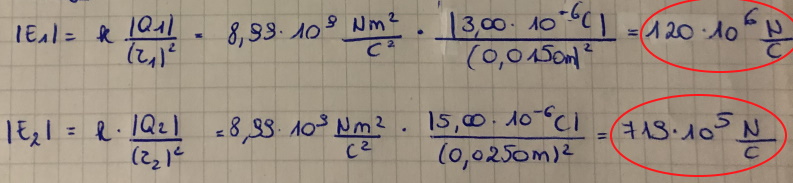 |E₁| = k |Q₁|/(r₁)² = 8,99 · 10⁹ Nm²/C² · |3,00 · 10⁻⁶C|/(0,0150m)² = 120 · 10⁶ N/C
|E₂| = k · |Q₂|/(r₂)² = 8,99 · 10⁹ Nm²/C² · |5,00 · 10⁻⁶C|/(0,0250m)² = 719 · 10⁵ N/C